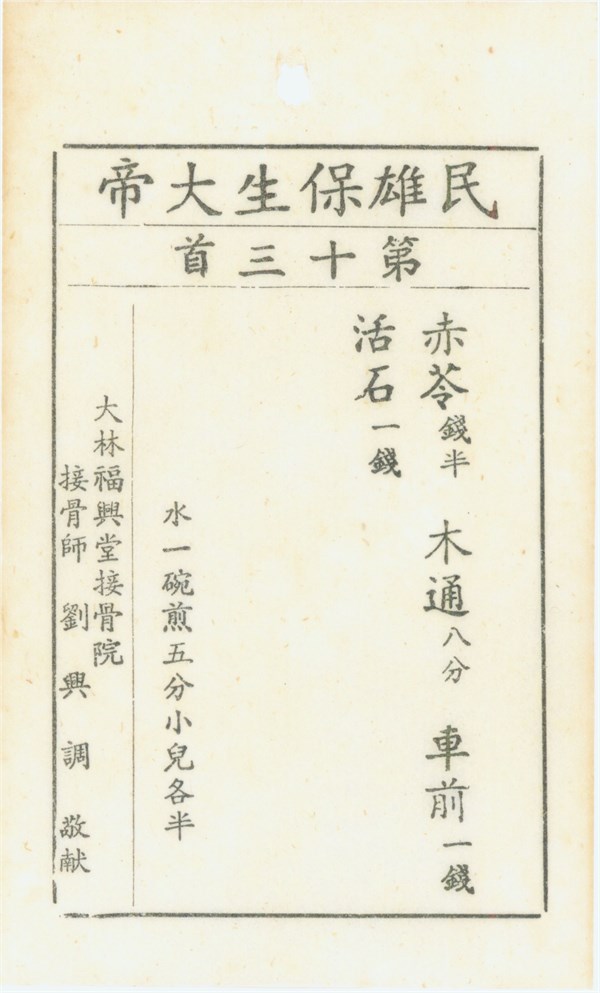 民雄保生大帝
第十三首
赤苓錢半　木通八分　車前一錢
活石一錢
水一碗煎五分小兒各半
大林福興堂接骨院
接骨師　劉興調　敬献